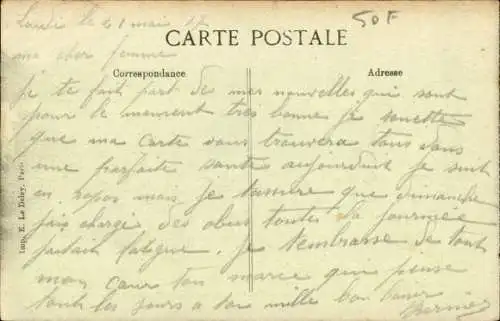 Lundi le 21 mai 17
50F
CARTE POSTALE
ma cher femme
Correspondance
Adresse
Je te fait part de mes nouvelles qui sont
pour le moment tres bonne je souette
que ma carte vous trouvera tous dans
une parfaite sante aujourduit je suit
en repos mais je tassure que dimanche
jais charge des obus toutes la journee
jetait fatigue. je tembrasse de tout
mon cœur ton marie qui pense
tout les jours a toi mille bon baiser
Imp. E. Le Deley, Paris